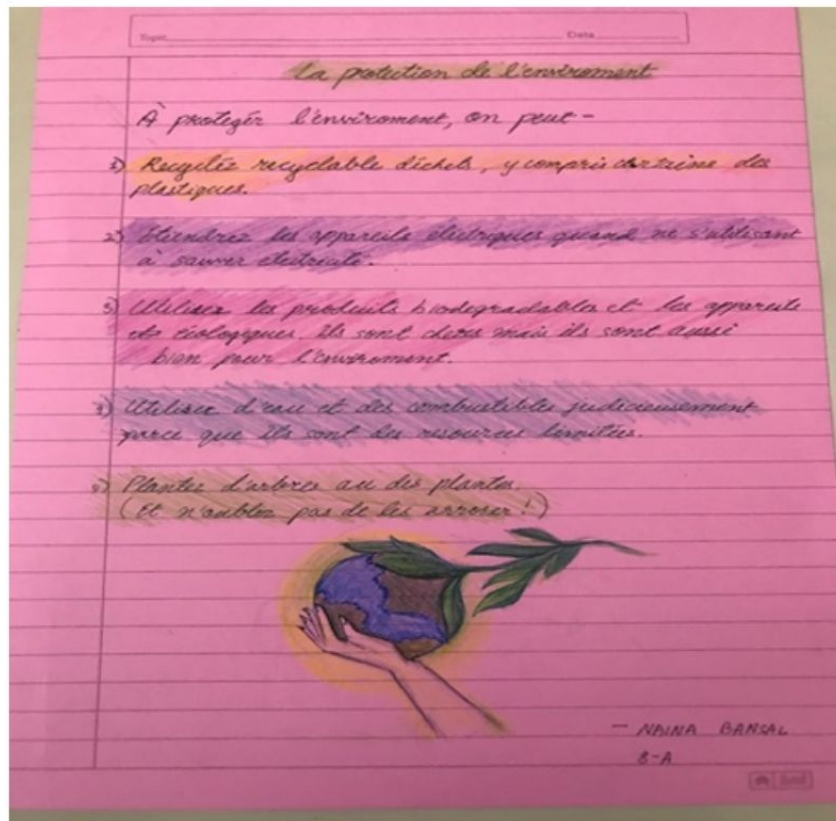 Topic Date
La protection de l'enviroment
À protegér l'enviroment, on peut -
1) Recycléz recyclable déchets, y compris certaine des
plastiques.
2) Éteindrez les appareils électriques quand ne s'utilisant
à sauver électricité.
3) Utilisez les produits biodegradables et les appareils
écologiques. Ils sont chers mais ils sont aussi
bien pour l'enviroment.
4) Utilisez d'eau et des combustibles judicieusement
parce que ils sont des resources limitées.
5) Plantez d'arbres au des plantes.
(Et n'oubliez pas de les arroser!)
- NAINA BANSAL
8-A